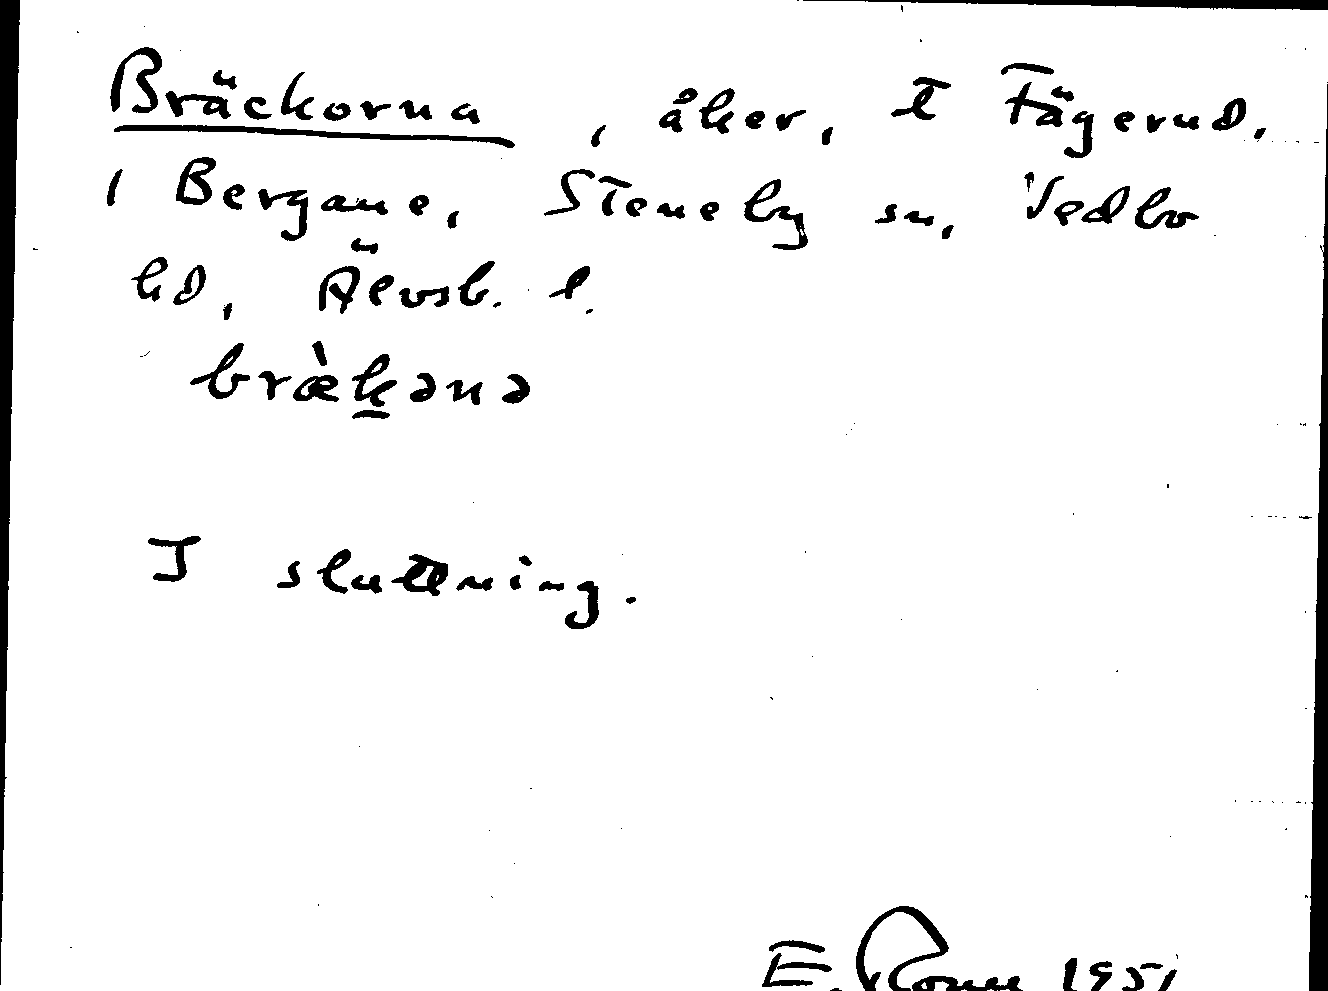 Bräckorna, åker, t Fägerud.
i Bergane, Steneby sn, Vedbo
hd, Älvsb. l.
bræ̀kənə
I sluttning.
E. 1951